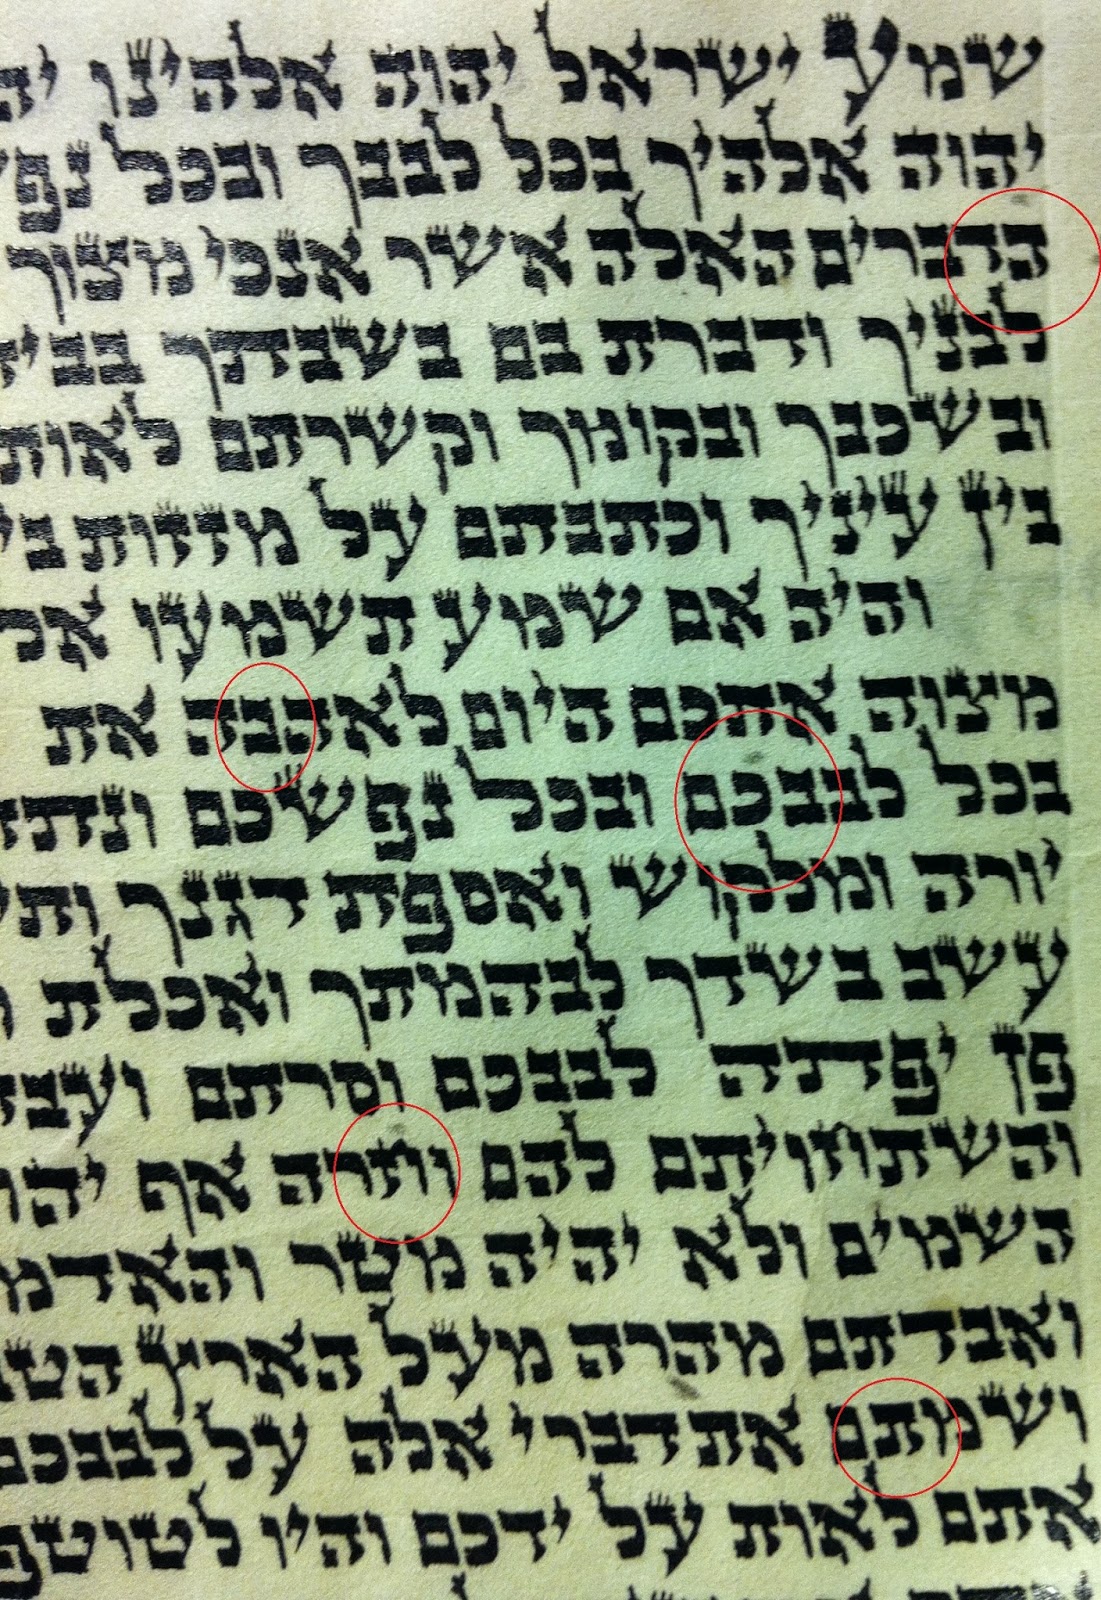 שמע ישראל יהוה אלהינו יה
יהוה אלהיך בכל לבבך ובכל נפ
הדברים האלה אשר אנכי מצוך
לבניך ודברת בם בשבתך בבי
ובשכבך ובקומך וקשרתם לאות
בין עיניך וכתבתם על מזזות בי
והיה אם שמע תשמעו אל
מצוה אתכם היום לאהבה את
בכל לבבכם ובכל נפשכם ונתת
יורה ומלקוש ואספת דגנך ותי
עשב בשדך לבהמתך ואכלת ו
פן יפתה לבבכם וסרתם ועבד
והשתחויתם להם וחרה אף יהו
השמים ולא יהיה מטר והאדמ
ואבדתם מהרה מעל הארץ הטב
ושמתם את דברי אלה על לבבכם
אתם לאות על ידכם והיו לטוטפ